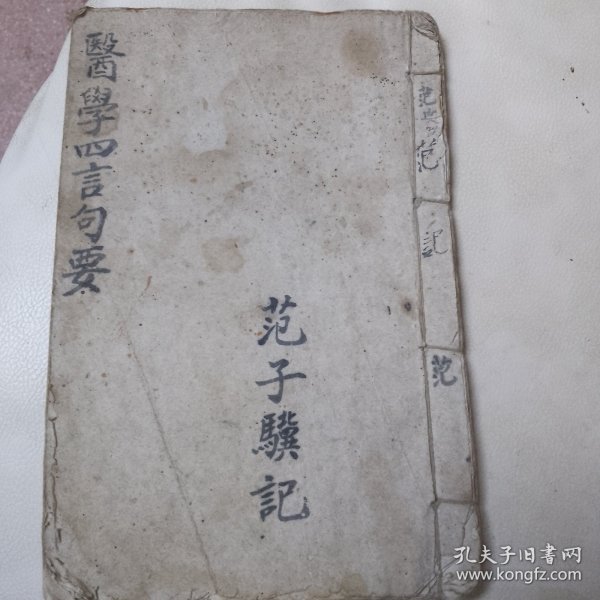 醫學四言句要
范子驥記
范
記
范
孔夫子旧书网
www.kongfz.com